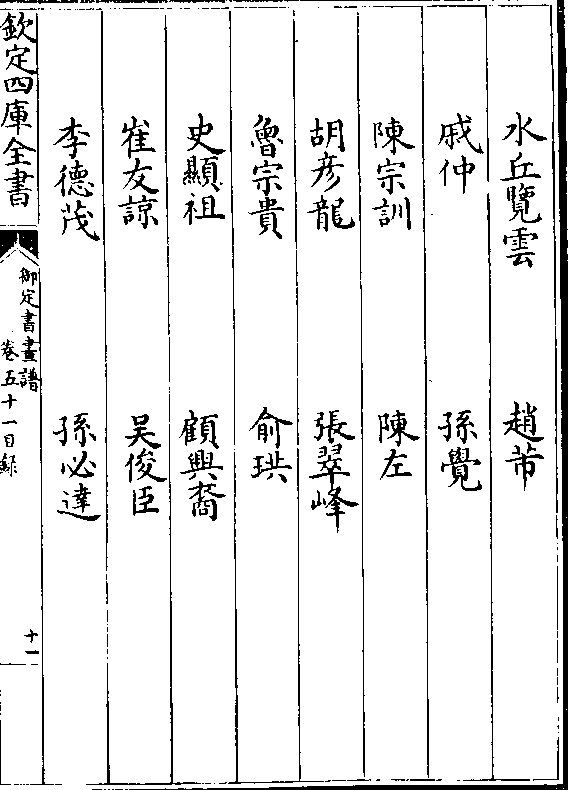 水丘覽雲　趙芾
戚仲　孫覺
陳宗訓　陳左
胡彦龍　張翠峰
魯宗貴　俞珙
史顯祖　顧興裔
崔友諒　吴俊臣
李德茂　孫必達
欽定四庫全書
御定書畫譜
卷五十一目録
十一